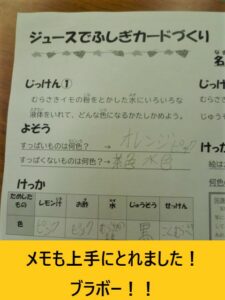 ジュースでふしぎカードづくり
じっけん①
むらさきイモの粉をとかした水にいろいろな
液体をいれて、どんな色になるかたしかめよう。
よそう
すっぱいものは何色? → オレンジ
すっぱくないものは何色? → 茶色 水色
けっか
ためしたもの レモン汁 お酢 水 じゅうそう せっけん
色 ピンク ピンク 黒
メモも上手にとれました！
ブラボー！！